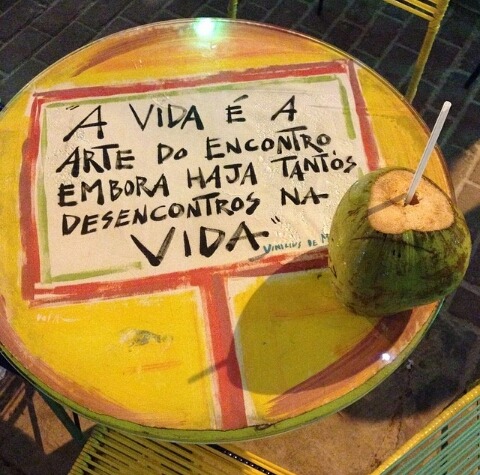 "A VIDA É A
ARTE DO ENCONTRO
EMBORA HAJA TANTOS
DESENCONTROS NA
VIDA"
VINICIUS DE